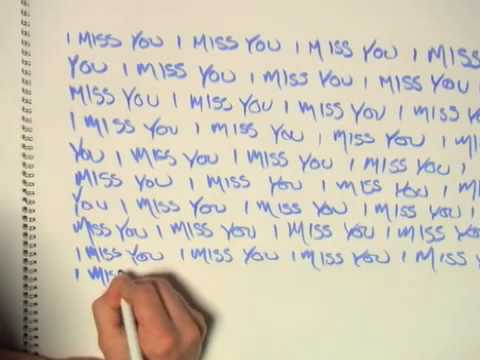 I MISS YOU I MISS YOU I MISS YOU I MISS
YOU I MISS YOU I MISS YOU I MISS YOU I
MISS YOU I MISS YOU I MISS YOU I MISS YO
I MISS YOU I MISS YOU I MISS YOU I MIS
YOU I MISS YOU I MISS YOU I MISS YOU I
MISS YOU I MISS YOU I MISS YOU I MI
YOU I MISS YOU I MISS YOU I MISS YOU I
MISS YOU I MISS YOU I MISS YOU I MISS YO
I MISS YOU I MISS YOU I MISS YOU I MISS Y
I MIS